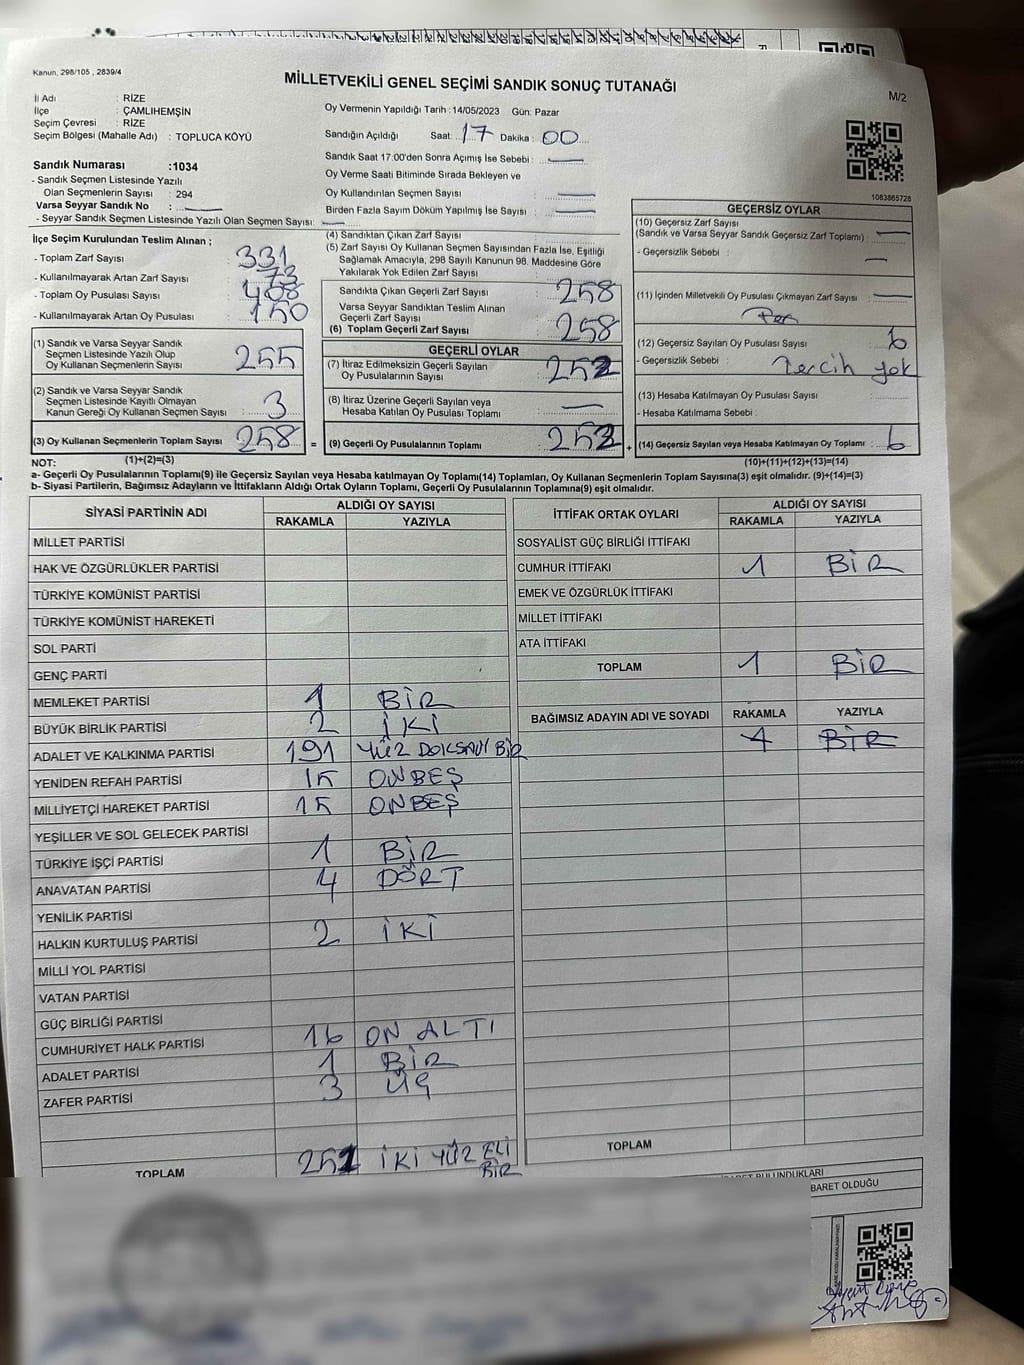 Kanun, 298/105 , 2839/4
MİLLETVEKİLİ GENEL SEÇİMİ SANDIK SONUÇ TUTANAĞI
M/2
İl Adı : RİZE
İlçe : ÇAMLIHEMŞİN
Seçim Çevresi : RİZE
Seçim Bölgesi (Mahalle Adı) : TOPLUCA KÖYÜ
Oy Vermenin Yapıldığı Tarih : 14/05/2023 Gün: Pazar
Sandığın Açıldığı Saat: 17 Dakika : 00
Sandık Saat 17:00'den Sonra Açımış İse Sebebi : —
Oy Verme Saati Bitiminde Sırada Bekleyen ve
Oy Kullandırılan Seçmen Sayısı —
Birden Fazla Sayım Döküm Yapılmış İse Sayısı —
1083865728
Sandık Numarası :1034
- Sandık Seçmen Listesinde Yazılı
Olan Seçmenlerin Sayısı : 294
Varsa Seyyar Sandık No : —
- Seyyar Sandık Seçmen Listesinde Yazılı Olan Seçmen Sayısı: —
İlçe Seçim Kurulundan Teslim Alınan ;
- Toplam Zarf Sayısı : 331
- Kullanılmayarak Artan Zarf Sayısı : 73
- Toplam Oy Pusulası Sayısı : 408
- Kullanılmayarak Artan Oy Pusulası : 150
(1) Sandık ve Varsa Seyyar Sandık
Seçmen Listesinde Yazılı Olup
Oy Kullanan Seçmenlerin Sayısı : 255
(2) Sandık ve Varsa Seyyar Sandık
Seçmen Listesinde Kayıtlı Olmayan
Kanun Gereği Oy Kullanan Seçmen Sayısı : 3
(3) Oy Kullanan Seçmenlerin Toplam Sayısı : 258 =
(4) Sandıktan Çıkan Zarf Sayısı :
(5) Zarf Sayısı Oy Kullanan Seçmen Sayısından Fazla İse, Eşitliği
Sağlamak Amacıyla, 298 Sayılı Kanunun 98. Maddesine Göre
Yakılarak Yok Edilen Zarf Sayısı :
Sandıkta Çıkan Geçerli Zarf Sayısı : 258
Varsa Seyyar Sandıktan Teslim Alınan
Geçerli Zarf Sayısı
(6) Toplam Geçerli Zarf Sayısı : 258
GEÇERLİ OYLAR
(7) İtiraz Edilmeksizin Geçerli Sayılan
Oy Pusulalarının Sayısı : 252
(8) İtiraz Üzerine Geçerli Sayılan veya
Hesaba Katılan Oy Pusulası Toplamı : —
(9) Geçerli Oy Pusulalarının Toplamı : 252 +
GEÇERSİZ OYLAR
(10) Geçersiz Zarf Sayısı
(Sandık ve Varsa Seyyar Sandık Geçersiz Zarf Toplamı) : —
- Geçersizlik Sebebi : —
(11) İçinden Milletvekili Oy Pusulası Çıkmayan Zarf Sayısı : —
(12) Geçersiz Sayılan Oy Pusulası Sayısı : 6
- Geçersizlik Sebebi : Tercih yok
(13) Hesaba Katılmayan Oy Pusulası Sayısı :
- Hesaba Katılmama Sebebi :
(14) Geçersiz Sayılan veya Hesaba Katılmayan Oy Toplamı : 6
NOT: (1)+(2)=(3) (10)+(11)+(12)+(13)=(14)
a- Geçerli Oy Pusulalarının Toplamı(9) ile Geçersiz Sayılan veya Hesaba katılmayan Oy Toplamı(14) Toplamları, Oy Kullanan Seçmenlerin Toplam Sayısına(3) eşit olmalıdır. (9)+(14)=(3)
b- Siyasi Partilerin, Bağımsız Adayların ve İttifakların Aldığı Ortak Oyların Toplamı, Geçerli Oy Pusulalarının Toplamına(9) eşit olmalıdır.
SİYASİ PARTİNİN ADI ALDIĞI OY SAYISI
RAKAMLA YAZIYLA
MİLLET PARTİSİ
HAK VE ÖZGÜRLÜKLER PARTİSİ
TÜRKİYE KOMÜNİST PARTİSİ
TÜRKİYE KOMÜNİST HAREKETİ
SOL PARTİ
GENÇ PARTİ
MEMLEKET PARTİSİ 1 BİR
BÜYÜK BİRLİK PARTİSİ 2 İKİ
ADALET VE KALKINMA PARTİSİ 191 YÜZ DOKSAN BİR
YENİDEN REFAH PARTİSİ 15 ONBEŞ
MİLLİYETÇİ HAREKET PARTİSİ 15 ONBEŞ
YEŞİLLER VE SOL GELECEK PARTİSİ
TÜRKİYE İŞÇİ PARTİSİ 1 BİR
ANAVATAN PARTİSİ 4 DÖRT
YENİLİK PARTİSİ
HALKIN KURTULUŞ PARTİSİ 2 İKİ
MİLLİ YOL PARTİSİ
VATAN PARTİSİ
GÜÇ BİRLİĞİ PARTİSİ
CUMHURİYET HALK PARTİSİ 16 ON ALTI
ADALET PARTİSİ 1 BİR
ZAFER PARTİSİ 3 ÜÇ
TOPLAM 251 İKİ YÜZ ELİ
BİR
İTTİFAK ORTAK OYLARI ALDIĞI OY SAYISI
RAKAMLA YAZIYLA
SOSYALİST GÜÇ BİRLİĞİ İTTİFAKI
CUMHUR İTTİFAKI 1 BİR
EMEK VE ÖZGÜRLÜK İTTİFAKI
MİLLET İTTİFAKI
ATA İTTİFAKI
TOPLAM 1 BİR
BAĞIMSIZ ADAYIN ADI VE SOYADI RAKAMLA YAZIYLA
1 BİR
TOPLAM
BULUNDUKLARI
BARET OLDUĞU